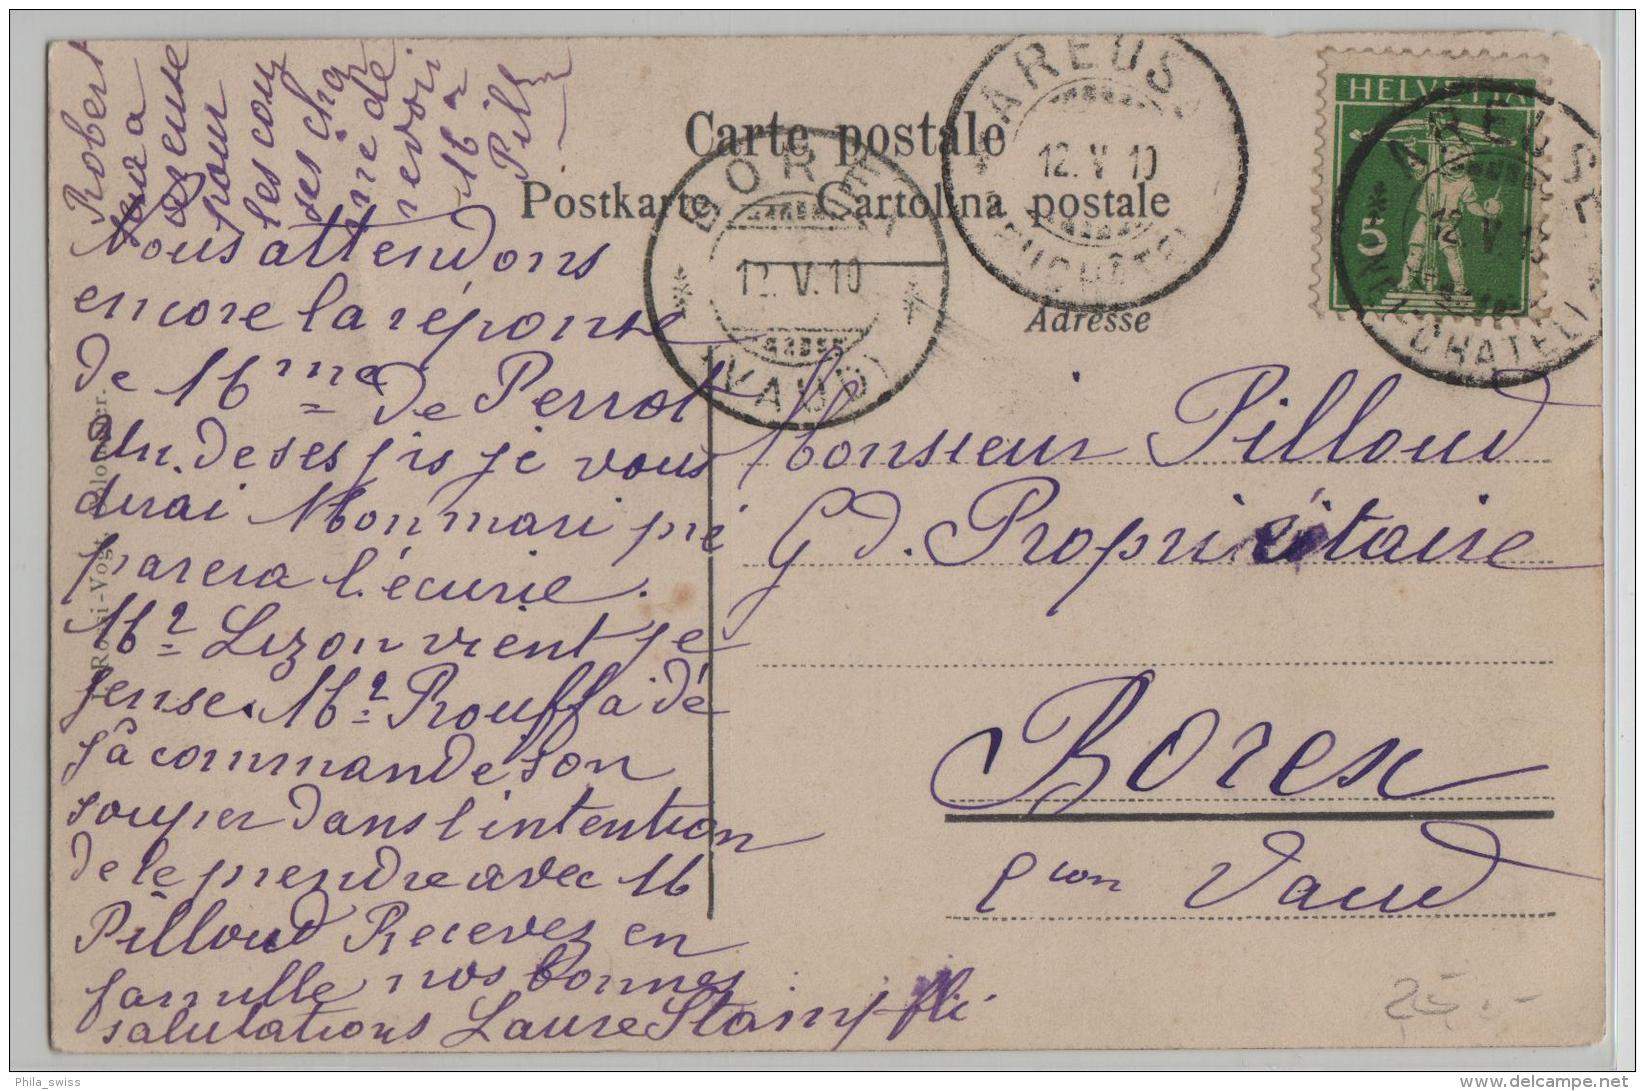 Carte postale
Postkarte Cartolina postale
Adresse
HELVETIA
5
AREUSE
12.V.10
(NEUCHÂTEL)
AREUSE
12.V.10
(NEUCHÂTEL)
BOREX
12.V.10
(VAUD)
Robert
sera
pour
les cou
ses cha
me de
revoir
M
Pill
Nous attendons
encore la réponse
de Mme de Perrot
Un de ses jrs je vous
dirai Mon mari pré
parera l'écurie.
Mr Lizon vient je
pense. Mr Rouff a dé
jà commande son
souper dans l'intention
de le prendre avec M
Pilloud Recevez en
famille nos bonnes
salutations Laure Stämpfli
Monsieur Pilloud
Gd. Propriétaire
Borex
con Vaud
25.-
Phila_swiss
delcampe.net